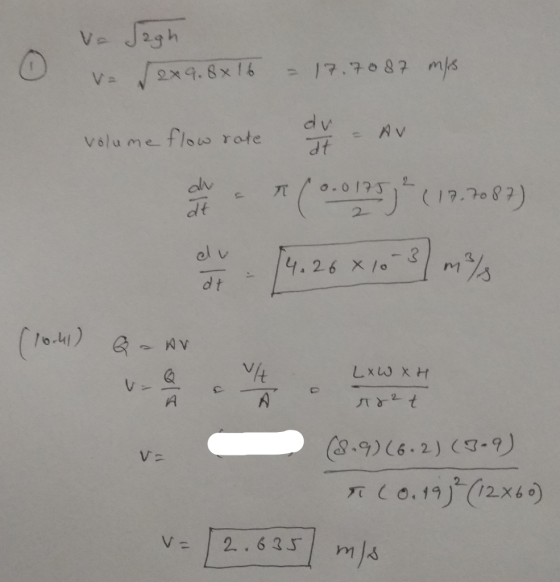 V = √2gh
① V = √2×9.8×16 = 17.7087 m/s
volume flow rate dv/dt = AV
dv/dt = π (0.0175/2)² (17.7087)
dv/dt = 4.26 × 10⁻³ m³/s
(10.41) Q = AV
V = Q/A = V/t/A = L×W×H/πr²t
V = (8.9)(6.2)(3.9)/π(0.19)²(12×60)
V = 2.635 m/s